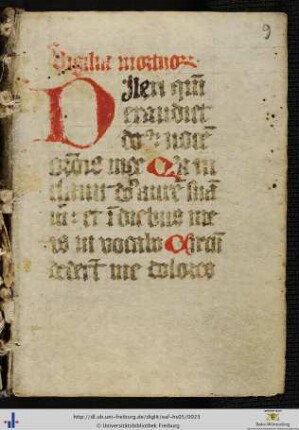 9
Vigilia mortuor
Dilexi qm̄
exaudiet
dn̄s voce͞
orōnis mee Quia in
clinavit aurē suā
m̄ : et ī diebus me
is invocabo Circū
dedert̄ me dolores
http://dl.ub.uni-freiburg.de/diglit/saf-hs05/0023
© Universitätsbibliothek Freiburg